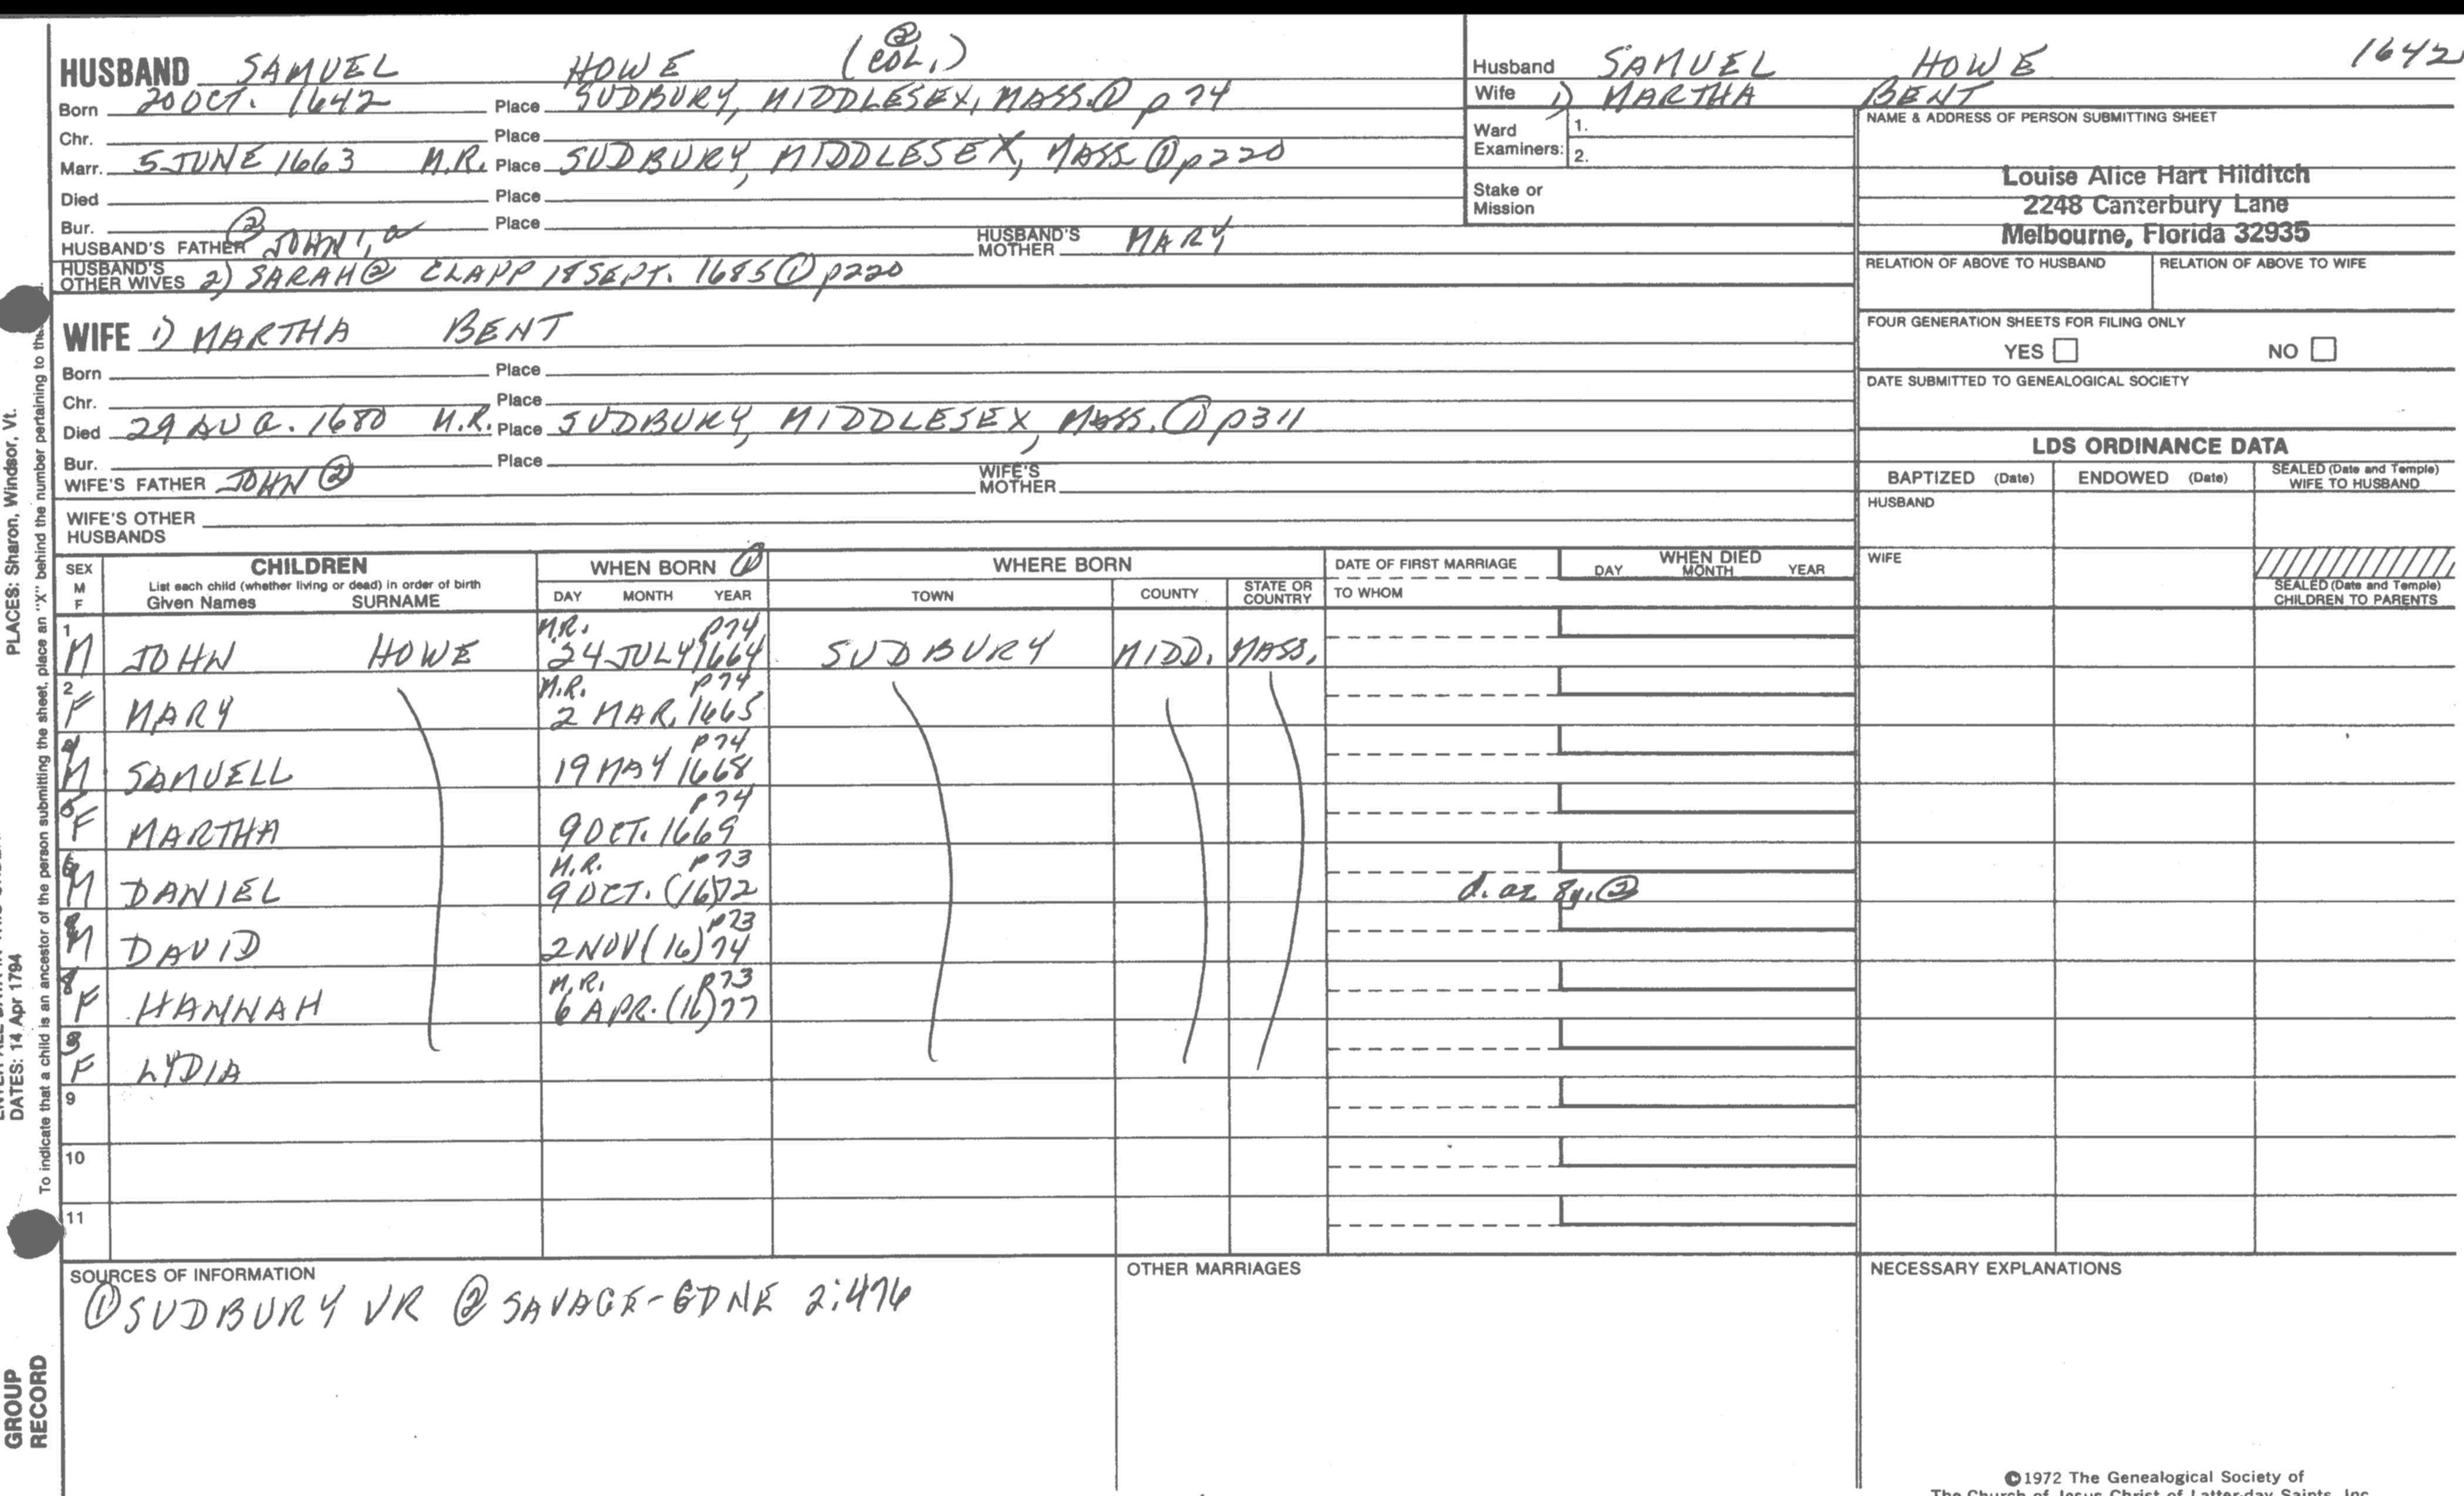 HUSBAND SAMUEL HOWE (COL.) ②
Born 20 OCT. 1642 Place SUDBURY, MIDDLESEX, MASS. ① p 74
Chr. Place
Marr. 5 JUNE 1663 M.R. Place SUDBURY, MIDDLESEX, MASS ① p220
Died Place
Bur. Place
HUSBAND'S FATHER ② JOHN HUSBAND'S MOTHER MARY
HUSBAND'S OTHER WIVES 2) SARAH ② CLAPP 18 SEPT. 1685 ① p220
WIFE 1) MARTHA BENT
Born Place
Chr. Place
Died 29 AUG. 1680 M.R. Place SUDBURY, MIDDLESEX, MASS. ① p311
Bur. Place
WIFE'S FATHER JOHN ② WIFE'S MOTHER
WIFE'S OTHER HUSBANDS
Husband SAMUEL HOWE 1642
Wife 1) MARTHA BENT
Ward Examiners: 1.
2.
Stake or Mission
NAME & ADDRESS OF PERSON SUBMITTING SHEET
Louise Alice Hart Hilditch
2248 Canterbury Lane
Melbourne, Florida 32935
RELATION OF ABOVE TO HUSBAND RELATION OF ABOVE TO WIFE
FOUR GENERATION SHEETS FOR FILING ONLY
YES NO
DATE SUBMITTED TO GENEALOGICAL SOCIETY
LDS ORDINANCE DATA
BAPTIZED (Date) ENDOWED (Date) SEALED (Date and Temple) WIFE TO HUSBAND
HUSBAND
WIFE
SEALED (Date and Temple) CHILDREN TO PARENTS
SEX M F CHILDREN WHEN BORN ① WHERE BORN DATE OF FIRST MARRIAGE WHEN DIED
List each child (whether living or dead) in order of birth
Given Names SURNAME DAY MONTH YEAR TOWN COUNTY STATE OR COUNTRY TO WHOM DAY MONTH YEAR
1 M.R. p74
M JOHN HOWE 24 JULY 1664 SUDBURY MIDD. MASS.
2 M.R. p74
F MARY 2 MAR. 1665
4 p74
M SAMUELL 19 MAY 1668
5 p74
F MARTHA 9 OCT. 1669
6 M.R. p73
M DANIEL 9 OCT. (16)72 d. ae 8y. ②
p73
M DAVID 2 NOV (16)74
8 M.R. p73
F HANNAH 6 APR. (16)77
3
F LYDIA
9
10
11
SOURCES OF INFORMATION
① SUDBURY VR ② SAVAGE-GDNE 2:476
OTHER MARRIAGES
NECESSARY EXPLANATIONS
©1972 The Genealogical Society of
The Church of Jesus Christ of Latter-day Saints, Inc.
PLACES: Sharon, Windsor, Vt.
DATES: 14 Apr 1794
To indicate that a child is an ancestor of the person submitting the sheet, place an "X" behind the number pertaining to
GROUP
RECORD